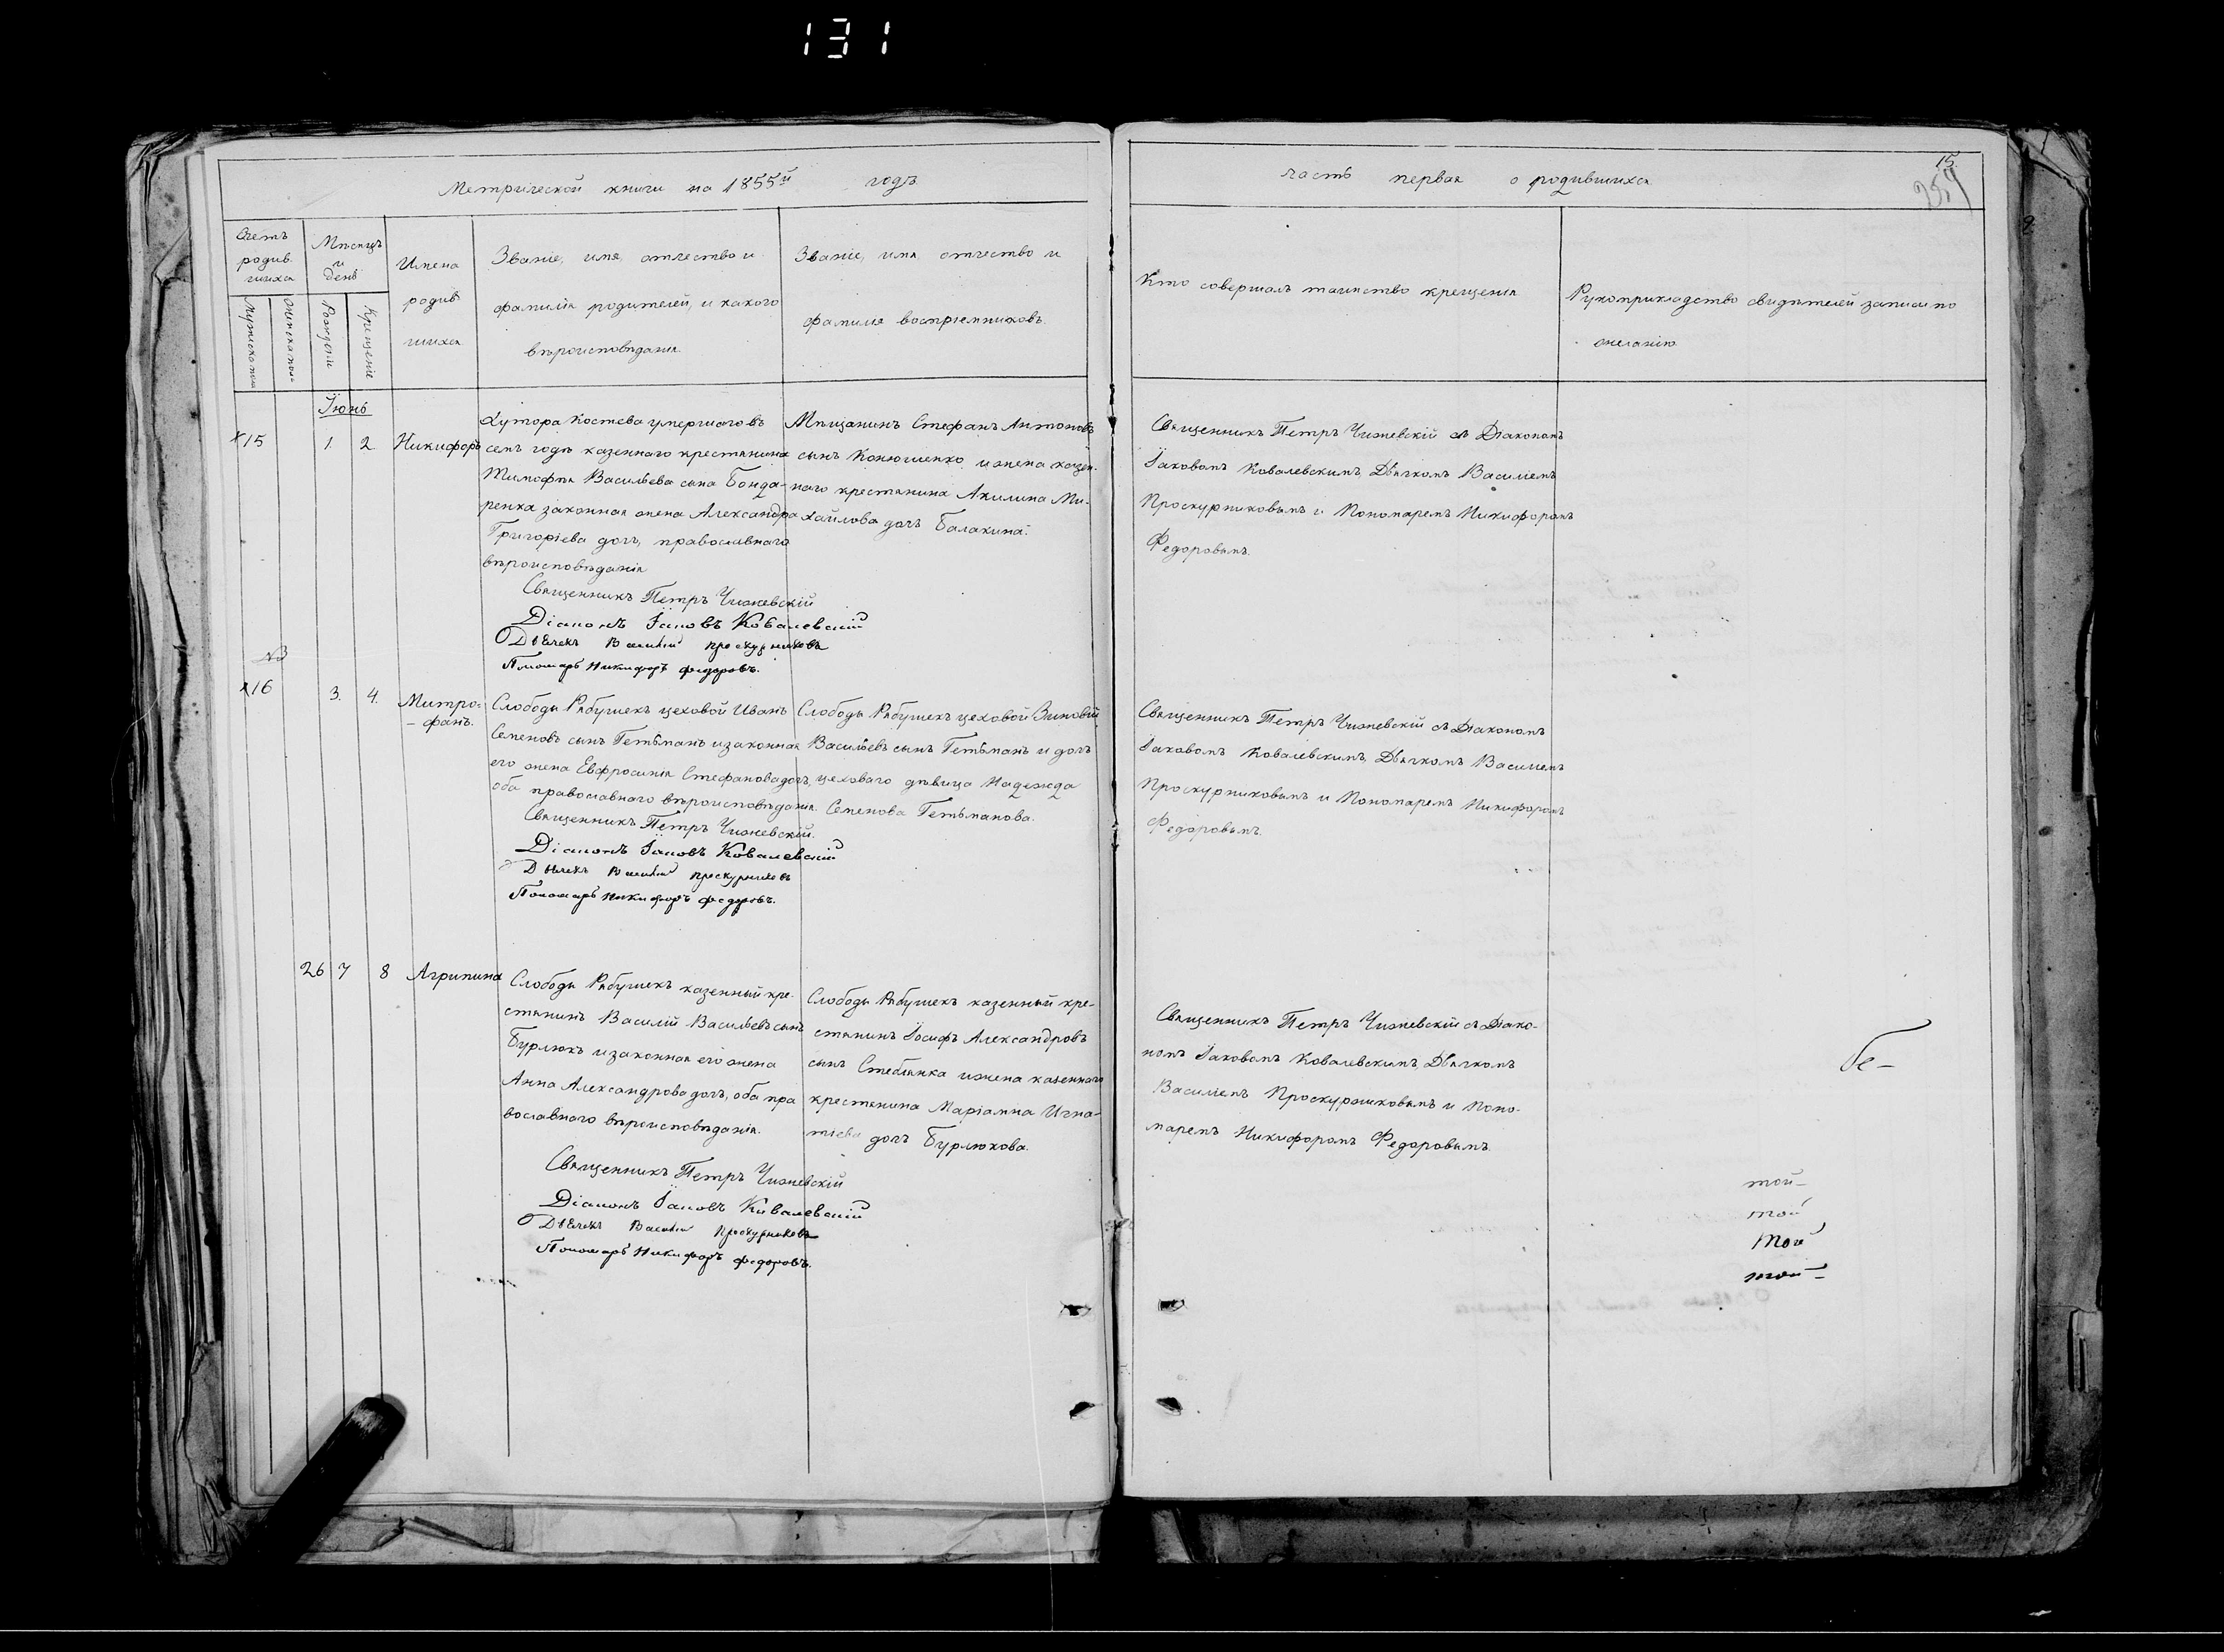 131
Метрической книги на 1855й годъ
часть первая о родившихся
15.
257
Счетъ родив шихся
Мѣсяцъ и день
Имена родив шихся
Званіе, имя, отчество и
фамилія родителей, и какого
вѣроисповѣданія.
Званіе, имя, отчество и
фамилія воспріемниковъ.
Кто совершалъ таинство крещенія
Рукоприкладство свидѣтелей записи по
желанію
Мужеска пола
Женска пола
Рожденіе
Крещеніе
Іюнь
15 1. 2 Никифоръ
Хутора Костева умершаго въ
семъ годѣ казеннаго крестянина
Тимофѣя Васильева сына Бонда-
ренка законная жена Александра
Григоріева дочь, православнаго
вѣроисповѣданія
Мѣщанинъ Стефанъ Антоновъ
сынъ Конюшенко и жена казен-
наго крестянина Акилина Ми-
хайлова дочь Балакина.
Священникъ Петръ Чижевскій съ Діакономъ
Іаковомъ Ковалевскимъ, Дьячкомъ Василіемъ
Проскурниковымъ и Пономаремъ Никифоромъ
Федоровымъ.
Священникъ Петръ Чижевскій
Діаконъ Іаковъ Ковалевскій
Дьячекъ Василій Проскурниковъ
Пономарь Никифоръ Федоровъ.
№3
16 3. 4. Митро-
фанъ.
Слободы Рябушекъ цеховой Иванъ
Семеновъ сынъ Гетьманъ и законная
его жена Евфросинія Стефанова дочь,
оба православнаго вѣроисповѣданія.
Слободы Рябушекъ цеховой Зиновій
Васильевъ сынъ Гетьманъ и дочь
цеховаго дѣвица Надежда
Семенова Гетьманова.
Священникъ Петръ Чижевскій съ Діакономъ
Іаковомъ Ковалевскимъ, Дьячкомъ Василіемъ
Проскурниковымъ и Пономаремъ Никифоромъ
Федоровымъ.
Священникъ Петръ Чижевскій.
Діаконъ Іаковъ Ковалевскій
Дьячекъ Василій Проскурниковъ
Пономарь Никифоръ Федоровъ.
26 7 8 Агрипина
Слободы Рябушекъ казенный кре-
стянинъ Василій Васильевъ сынъ
Бурлюкъ и законная его жена
Анна Александрова дочь, оба пра
вославнаго вѣроисповѣданія.
Слободы Рябушекъ казенный кре-
стянинъ Іосифъ Александровъ
сынъ Стеблянка и жена казеннаго
крестянина Маріамна Игна-
тіева дочь Бурлюкова.
Священникъ Петръ Чижевскій съ Діако-
номъ Іаковомъ Ковалевскимъ, Дьячкомъ
Василіемъ Проскурниковымъ и Поно-
маремъ Никифоромъ Федоровымъ.
Священникъ Петръ Чижевскій
Діаконъ Іаковъ Ковалевскій
Дьячекъ Василій Проскурниковъ
Пономарь Никифоръ Федоровъ.
бе-
той-
той
той
той-